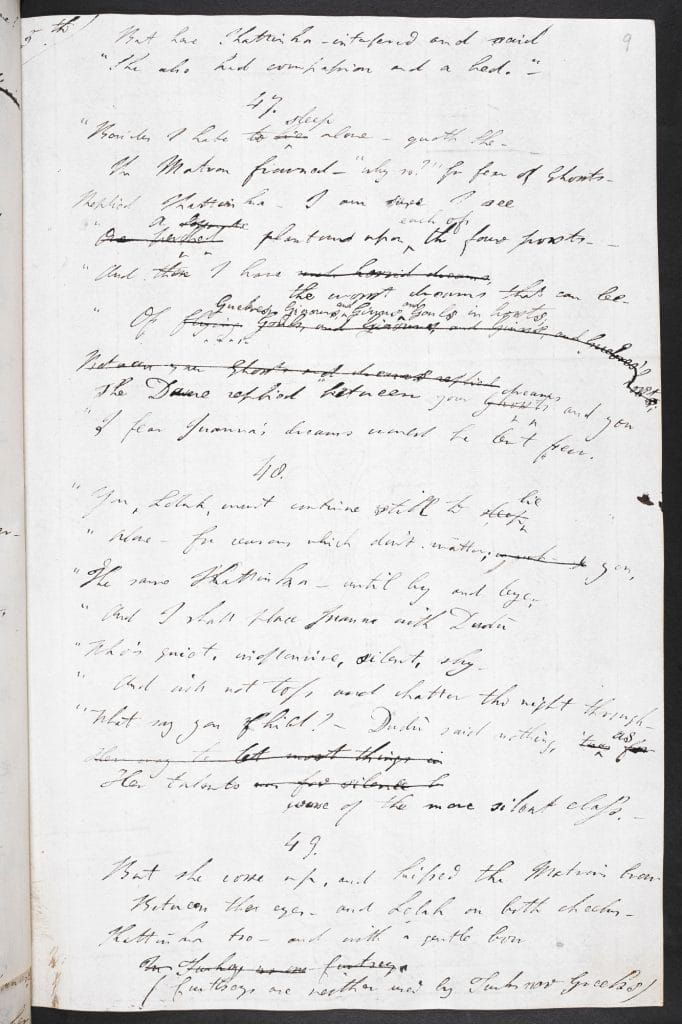 5th
9
But here Kattinka interfered and said
"She also had compassion and a bed."—
47.
"Besides I hate to sleep alone — quoth she —
The Matron frowned — "why so?" "for fear of Ghosts —
Replied Kattinka — I am sure I see
a each of
plantoms upon the four posts —
"And then I have and horrid dreams,
the worst dreams that can be —
Guebres, Giaours, and Ginns, and Gouls in hosts,
" Of Gouls, and Giaours, and Ginns, and Guebres
Between your Ghosts and dreams replied
The Dame replied "between your dreams and you
"I fear Juanna's dreams would be but few.
48.
"You, Lolah, must continue still to lie
" alone — for reasons which don't matter, you,
"The same Kattinka — until by and bye;
" And I shall place Juanna with Dudù
"Who's quiet, inoffensive, silent, shy —
" And will not toss and chatter the night through —
"What say you Child? — Dudù said nothing, as
Her way to let most things in
Her talents for silence
were of the more silent class. —
49.
But she rose up, and kissed the Matron's brow
Between the eyes — and Lolah on both cheeks —
Kattinka too — and with a gentle bow
In Turkey no one curtseys
(Curtseys are neither used by Turks nor Greeks)